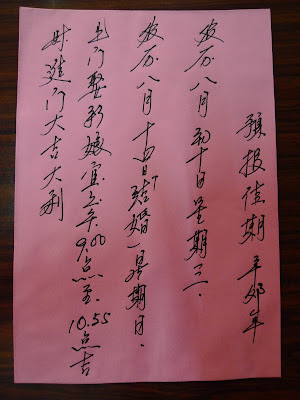 預报佳期 辛卯年
农历八月初十日星期三.
农历八月十四日結婚星期日.
出门娶新娘宜上午9.00点至10.55点吉
时進门大吉大利